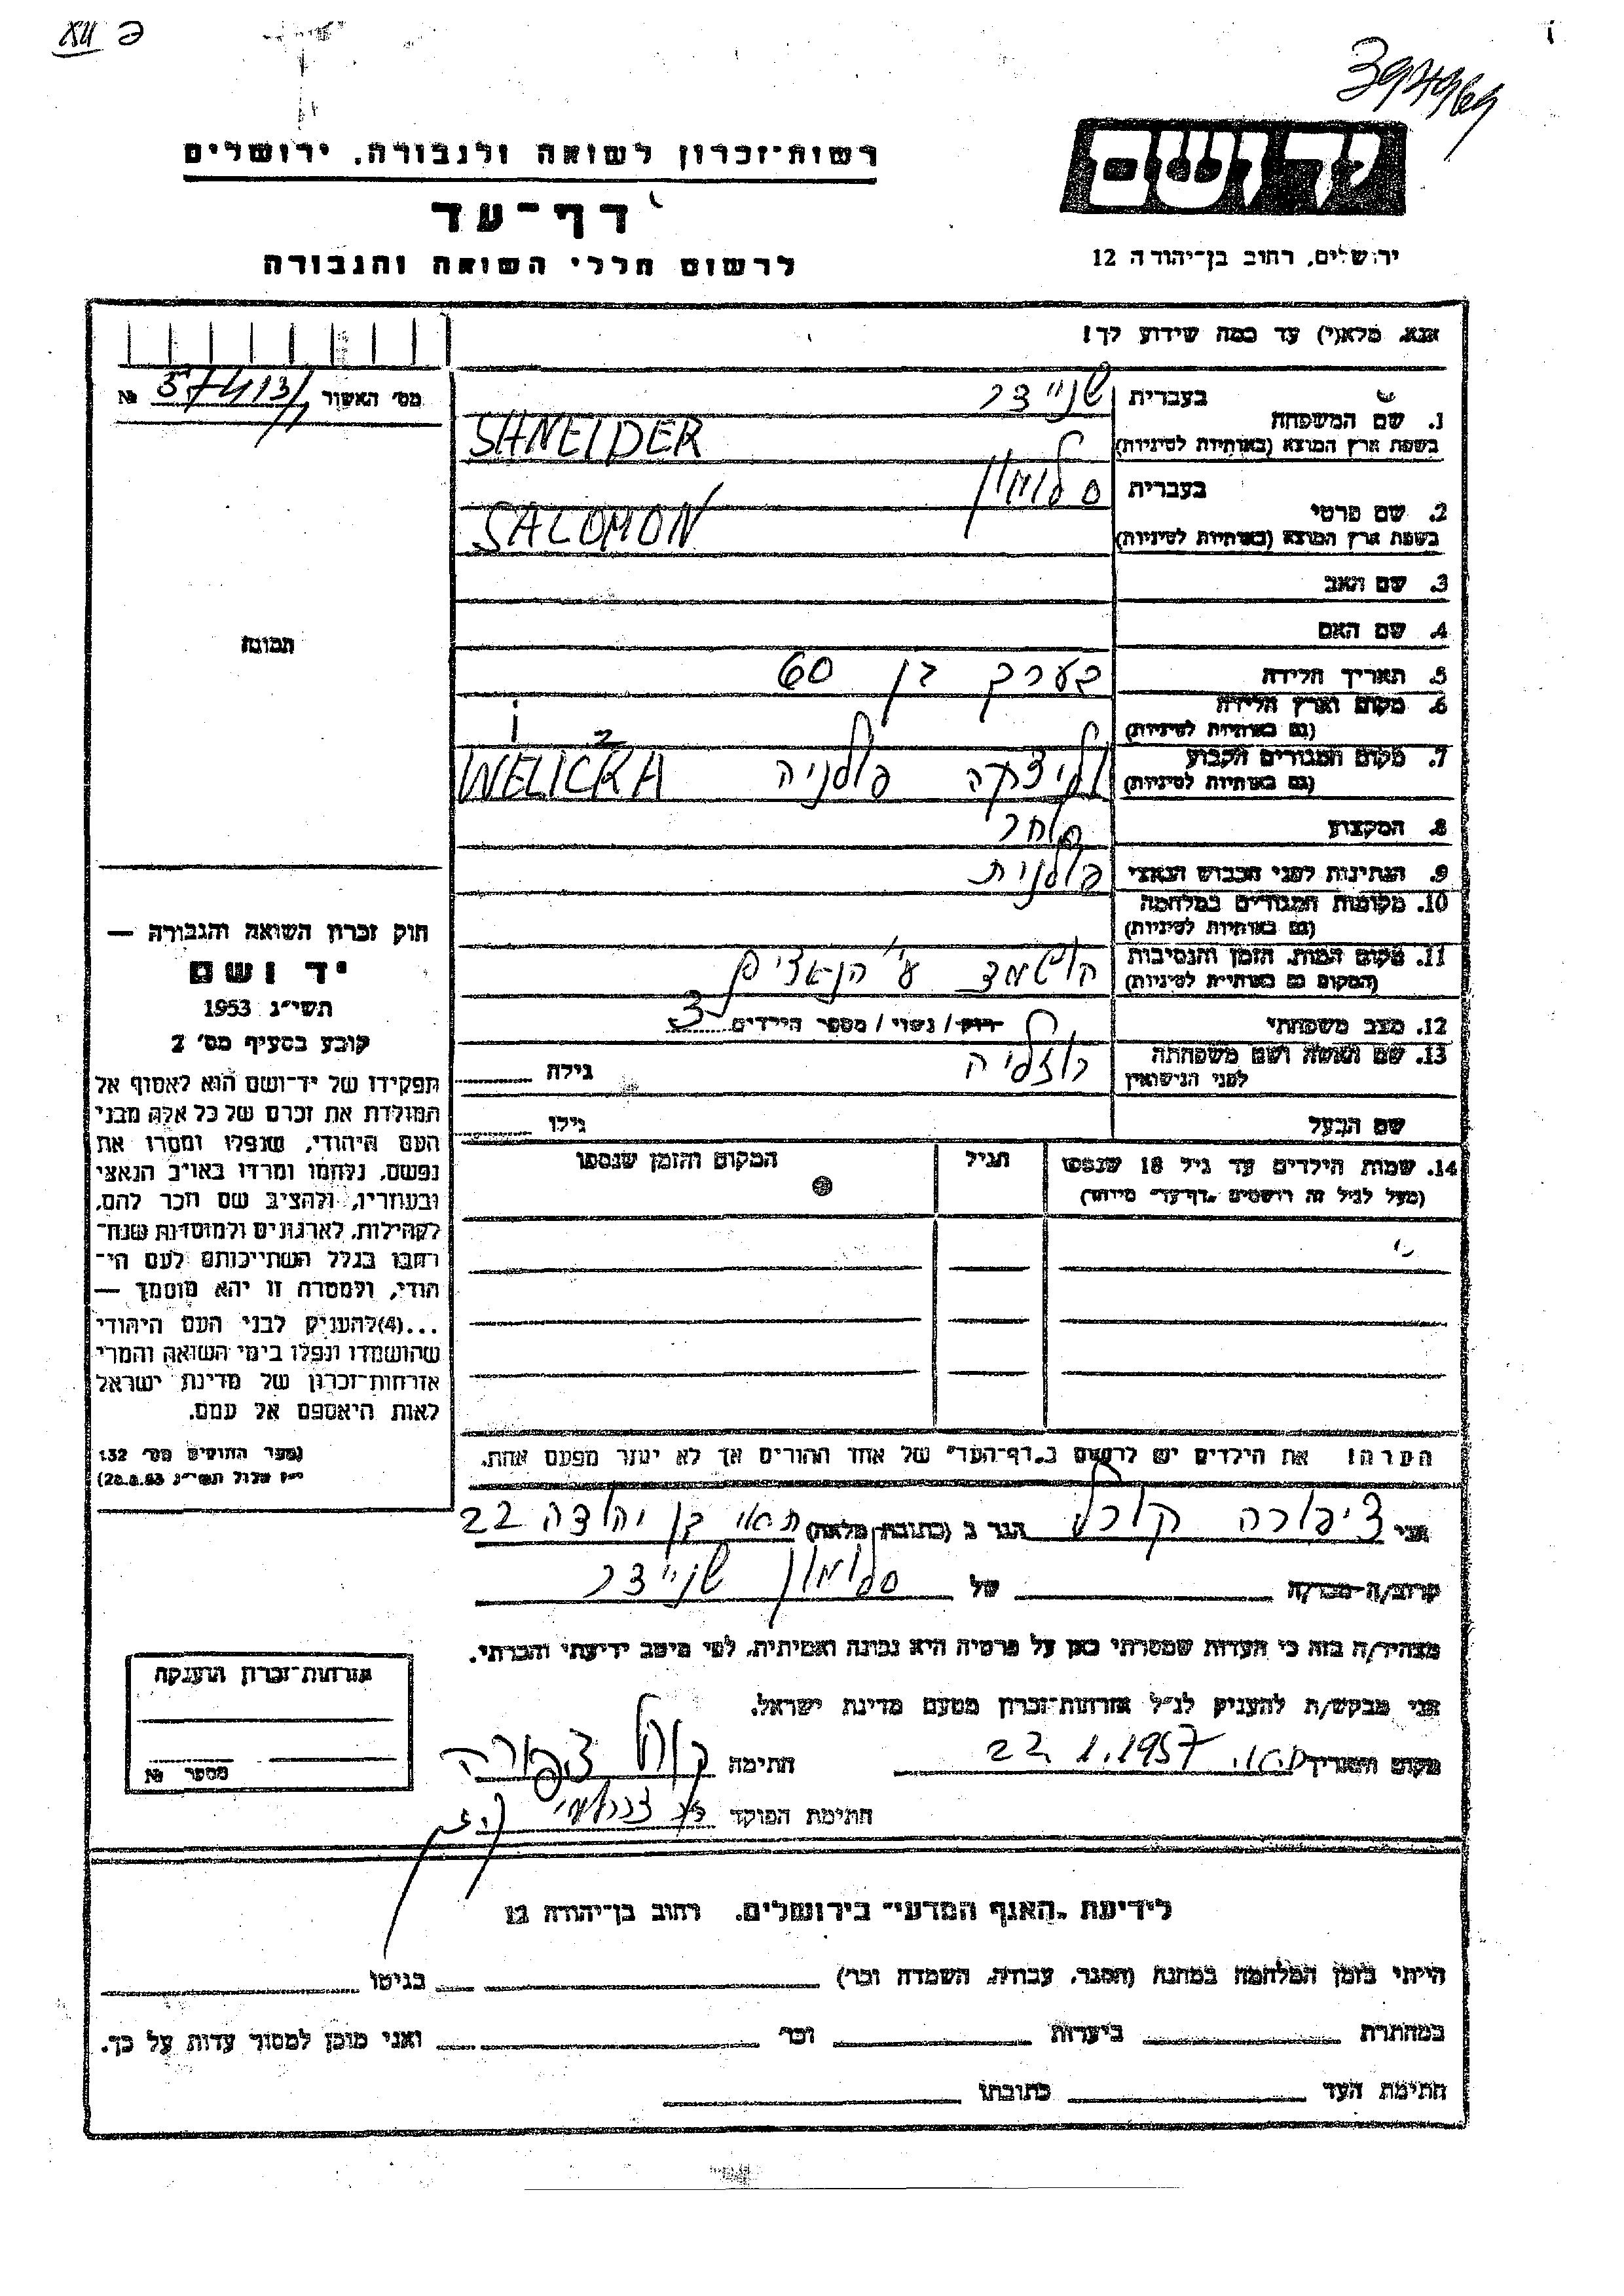 397969
רשות־זכרון לשואה ולגבורה, ירושלים
יד ושם
דף־עד
ירושלים, רחוב בן־יהודה 12
לרשום חללי השואה והגבורה
אנא, מלא(י) עד כמה שידוע לך!
מס׳ האשור №
1. שם המשפחה
בעברית שניידר
בשפת ארץ המוצא (באותיות לטיניות) SHNEIDER
2. שם פרטי
בעברית סלומון
בשפת ארץ המוצא (באותיות לטיניות) SALOMON
3. שם האב
4. שם האם
תמונה
5. תאריך הלידה בערך בן 60
6. מקום וארץ הלידה
(גם באותיות לטיניות)
7. מקום המגורים הקבוע וליצקה פולניה WELICZKA
(גם באותיות לטיניות)
8. המקצוע סוחר
9. הנתינות לפני הכבוש הנאצי פולנית
10. מקומות המגורים במלחמה
(גם באותיות לטיניות)
11. מקום המות, הזמן והנסיבות הושמד ע״י הנאצים
(המקום גם באותיות לטיניות)
12. מצב משפחתי רווק / נשוי / מספר הילדים 3
13. שם האשה ושם משפחתה רוזליה גילה
לפני הנישואין
שם הבעל גילו
14. שמות הילדים עד גיל 18 שנספו הגיל המקום והזמן שנספו
(מעל לגיל זה רושמים „דף־עד״ מיוחד)
חוק זכרון השואה והגבורה —
יד ושם
תשי״ג 1953
קובע בסעיף מס׳ 2
תפקידו של יד־ושם הוא לאסוף אל
המולדת את זכרם של כל אלה מבני
העם היהודי, שנפלו ומסרו את
נפשם, נלחמו ומרדו באויב הנאצי
ובעוזריו, ולהציב שם וזכר להם,
לקהילות, לארגונים ולמוסדות שנח־
רבו בגלל השתייכותם לעם הי־
הודי, ולמטרה זו יהא מוסמך —
...(4)להעניק לבני העם היהודי
שהושמדו ונפלו בימי השואה והמרי
אזרחות־זכרון של מדינת ישראל
לאות היאספם אל עמם.
(ספר החוקים מס׳ 132
י״ז אלול תשי״ג 28.8.53)
הערה! את הילדים יש לרשום ב„דף־העד״ של אחד ההורים אך לא יותר מפעם אחת.
אני ציפורה קורל הגר ב (כתובת מלאה) בן יהודה 22
קרוב/ה־מכר/ה של סלומון שניידר
מצהיר/ה בזה כי העדות שמסרתי כאן על פרטיה היא נכונה ואמיתית, לפי מיטב ידיעתי והכרתי.
אני מבקש/ת להעניק לנ״ל אזרחות־זכרון מטעם מדינת ישראל.
מקום ותאריך 22.1.1957 חתימה קורל צפורה
חתימת הפוקד
אזרחות־זכרון הוענקה
מספר №
לידיעת „האגף המדעי״ בירושלים, רחוב בן־יהודה 12
הייתי בזמן המלחמה במחנה (הסגר, עבודה, השמדה וכו׳) בגיטו
במחתרת ביערות וכו׳ ואני מוכן למסור עדות על כך.
חתימת העד כתובתו